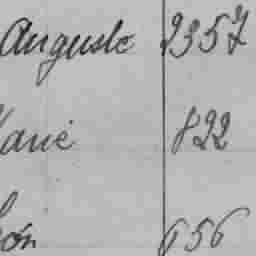 Auguste 2357
Marie 822
Léon 656